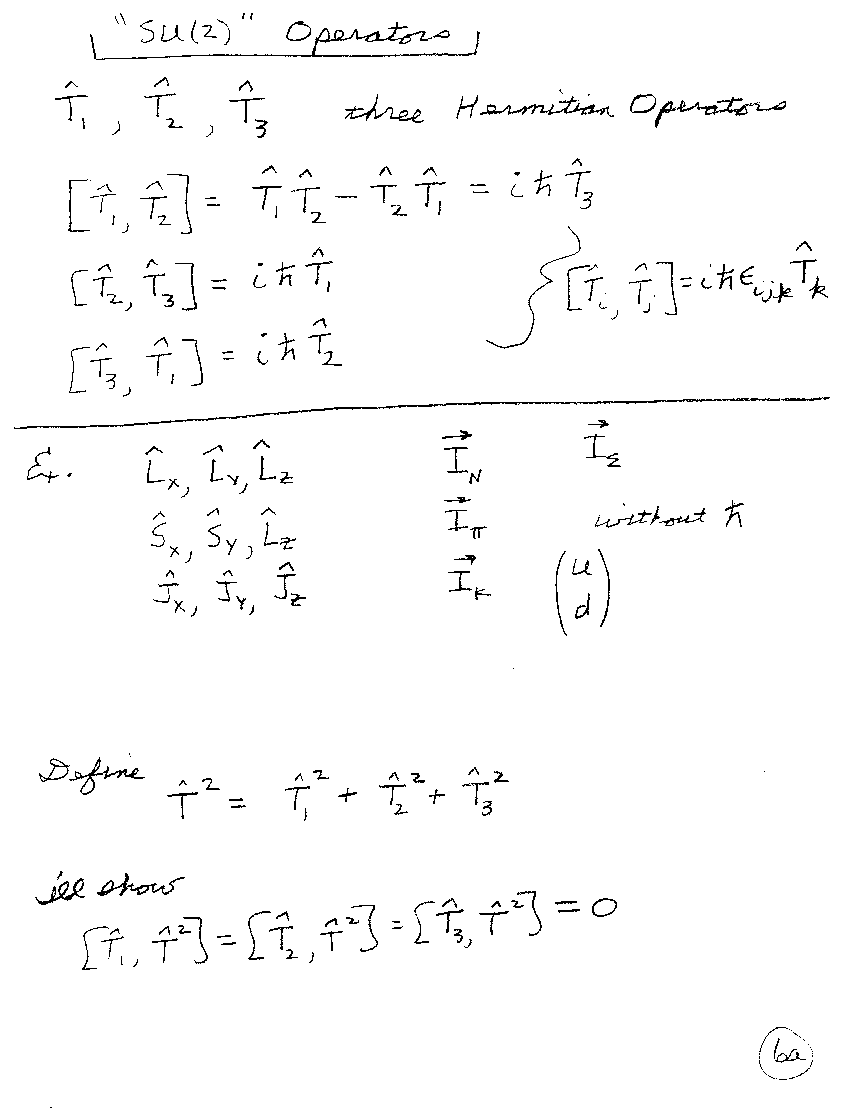 "SU(2)" Operators
T̂₁, T̂₂, T̂₃ three Hermitian Operators
[T̂₁, T̂₂] = T̂₁T̂₂ - T̂₂T̂₁ = iħT̂₃
[T̂₂, T̂₃] = iħT̂₁
[T̂ᵢ, T̂ⱼ] = iħϵᵢⱼₖT̂ₖ
[T̂₃, T̂₁] = iħT̂₂
Ex. L̂x, L̂y, L̂z I⃗N I⃗Σ
Ŝx, Ŝy, L̂z I⃗π without ħ
Ĵx, Ĵy, Ĵz I⃗K (u
d)
Define T̂² = T̂₁² + T̂₂² + T̂₃²
ill show
[T̂₁, T̂²] = [T̂₂, T̂²] = [T̂₃, T̂²] = 0
6a